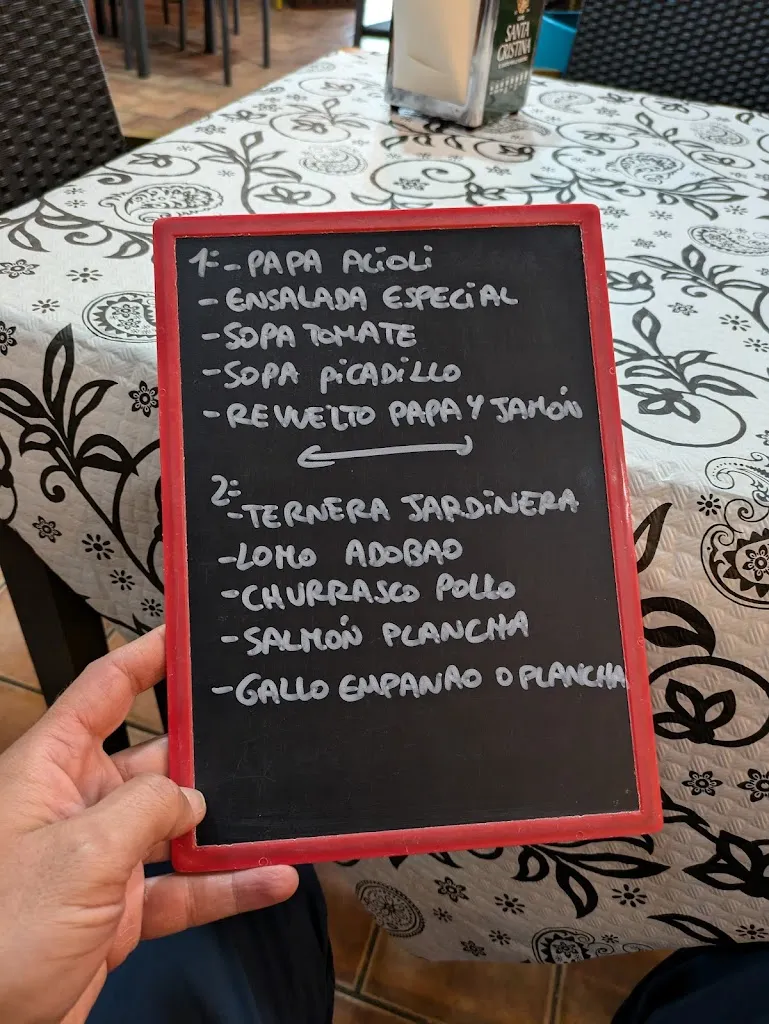 SANTA
CRISTINA
1º:- PAPA ACIOLI
- ENSALADA ESPECIAL
- SOPA TOMATE
- SOPA PICADILLO
- REVUELTO PAPA Y JAMÓN
2º:
- TERNERA JARDINERA
- LOMO ADOBAO
- CHURRASCO POLLO
- SALMÓN PLANCHA
- GALLO EMPANAO O PLANCHA